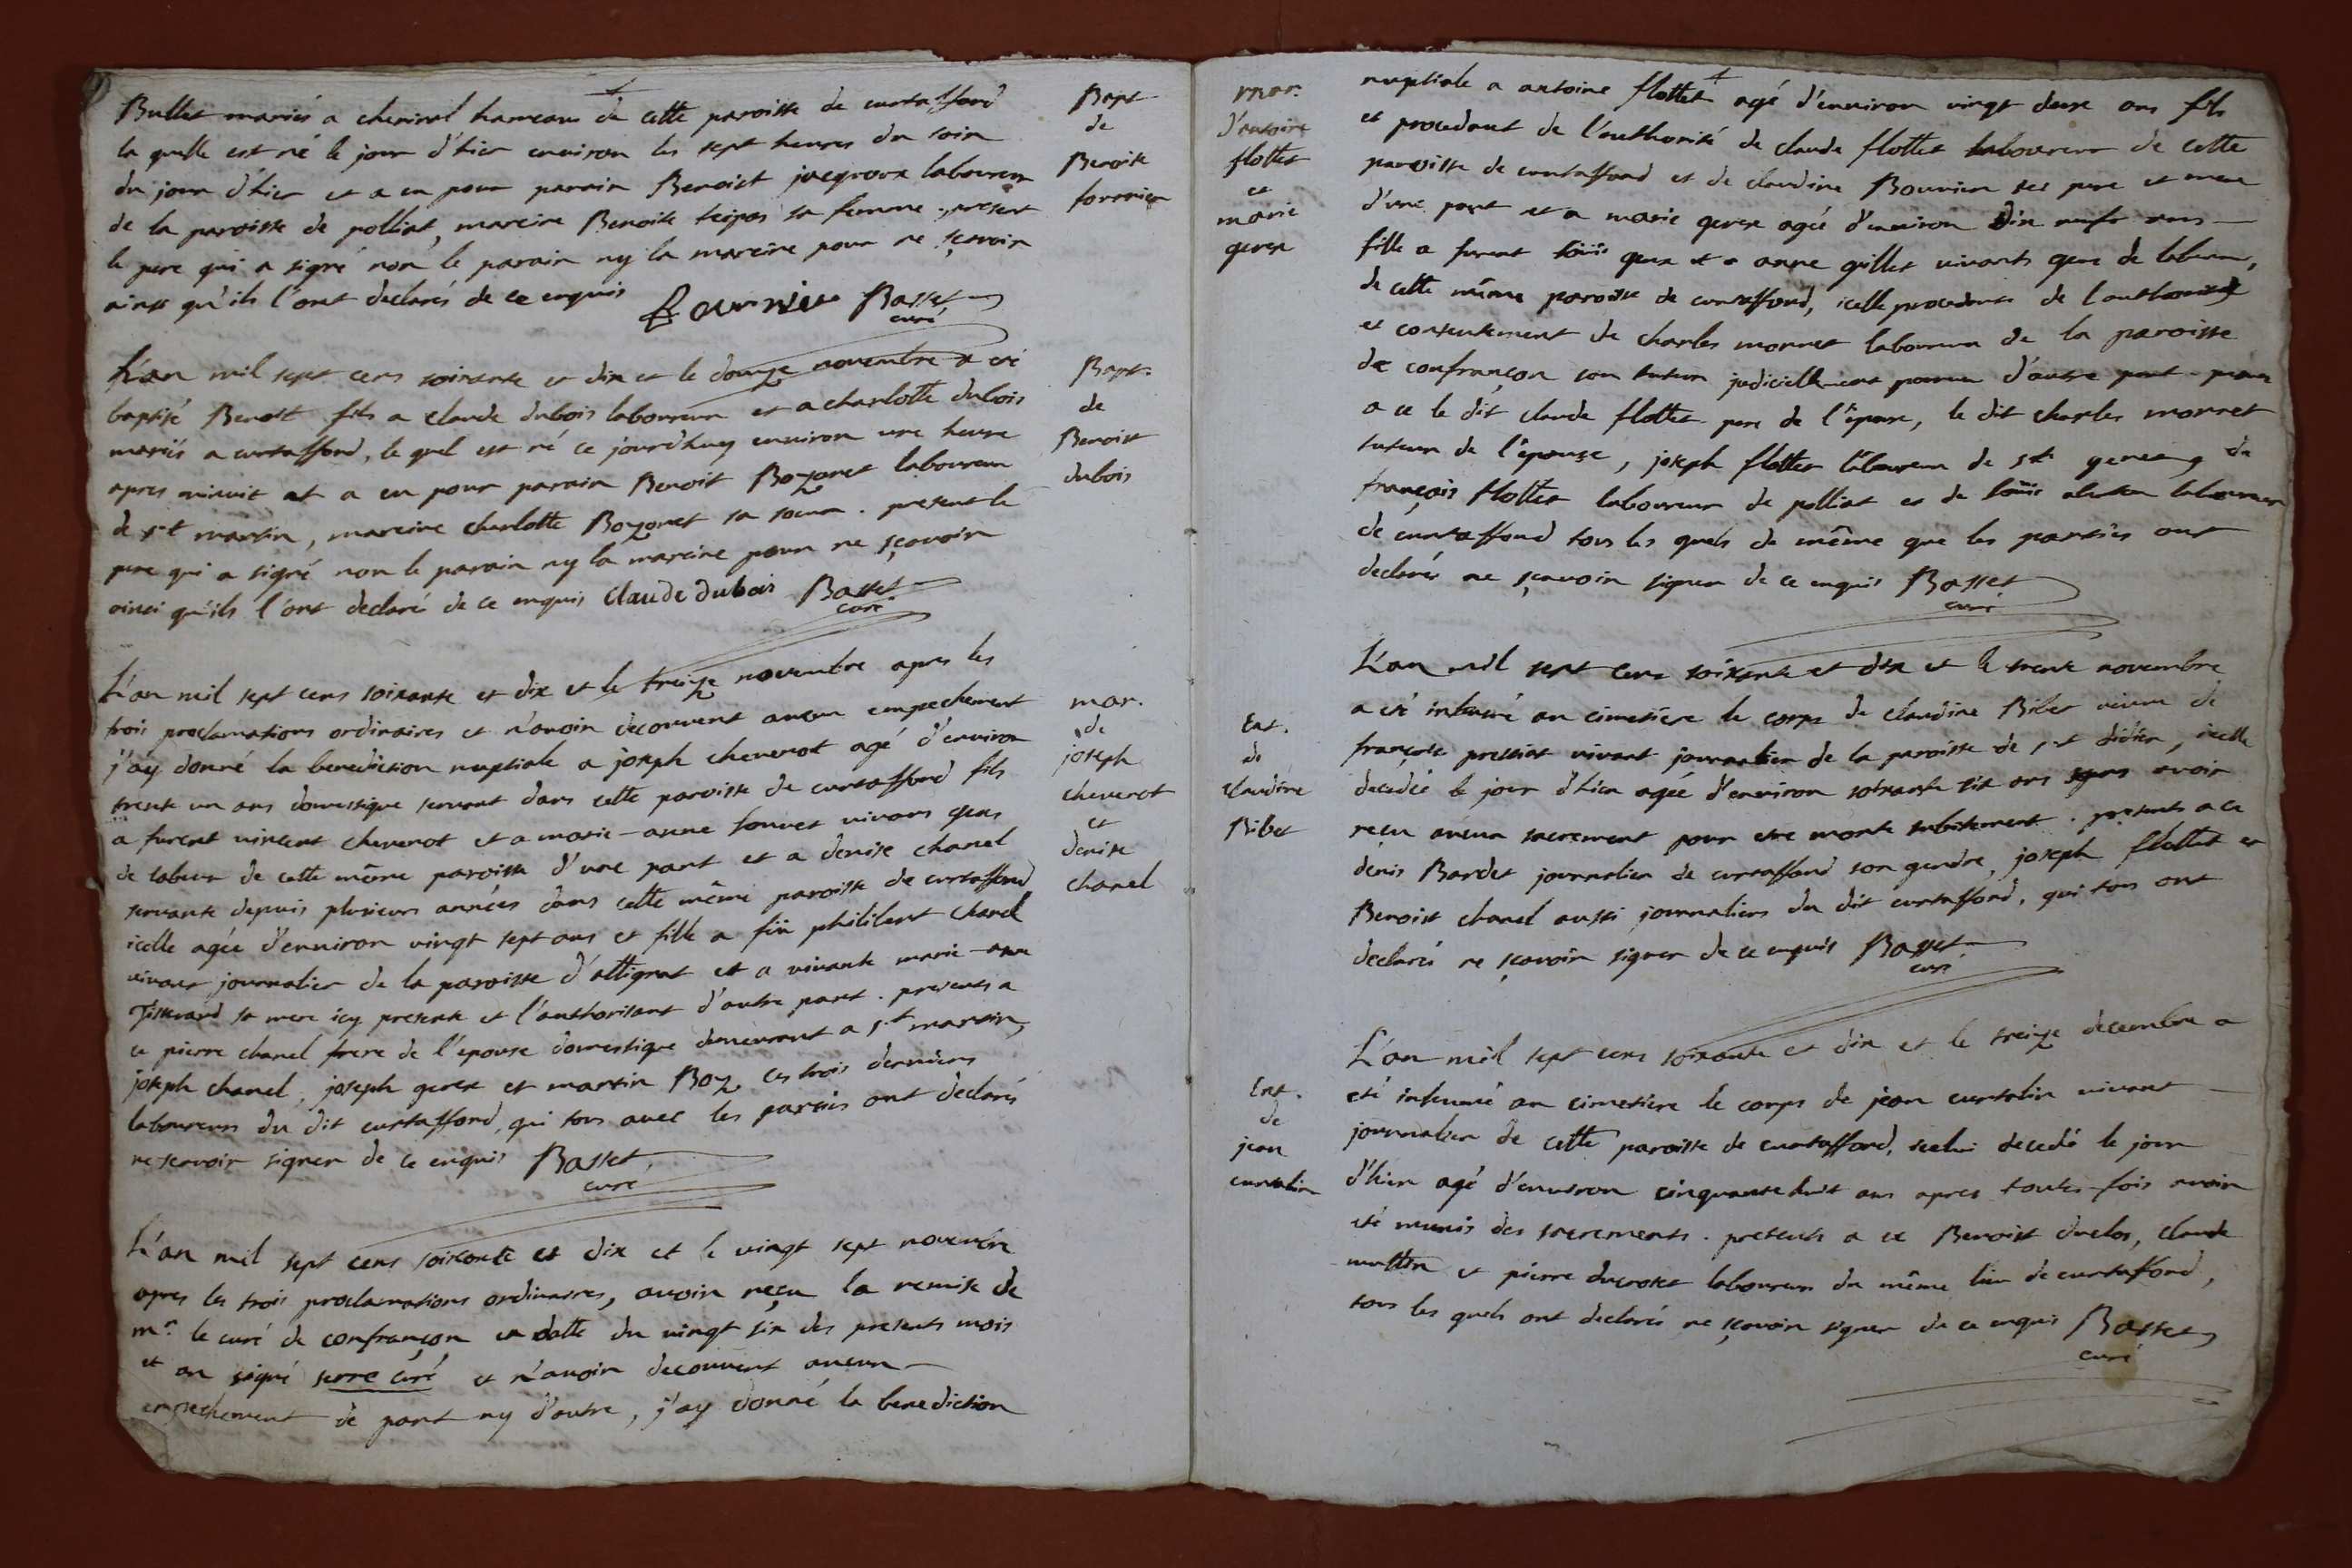 Bullet mariés a cheniral hameau de cette paroisse de curtaffond
la quelle est né le jour d'hier environ les sept heures du soir
du jour d'hier et a eu pour parain Benoist jacquoux laboureur
de la paroisse de polliat, mareine Benoite tripoz sa femme. present
le pere qui a signé non le parain ny la mareine pour ne sçavoir
ainsi qu'ils l'ont declarés de ce enquis fournier Basset
curé
Bapt
de
Benoite
fornier
L'an mil sept cens soixante et dix et le douze novembre a eté
baptisé Benoit fils a claude dubois laboureur et a charlotte dubois
mariés a curtaffond, le quel est né ce jourd'huy environ une heure
apres minuit et a eu pour parain Benoit Bozonet laboureur
de st martin, mareine charlotte Bozonet sa soeur. present le
pere qui a signé non le parain ny la mareine pour ne sçavoir
ainsi qu'ils l'ont declaré de ce enquis Claude dubois Basset
curé
Bapt.
de
Benoist
dubois
L'an mil sept cens soixante et dix et le treize novembre apres les
trois proclamations ordinaires et n'avoir decouvert aucun empechement
j'ay donné la benediction nuptiale a joseph chevenot agé d'environ
trente un ans domestique servant dans cette paroisse de curtaffond fils
a furent vincent chevenot et a marie-anne louvet vivans gens
de labeur de cette même paroisse d'une part et a denise chanel
servante depuis plusieurs années dans cette même paroisse de curtaffond
icelle agée d'environ vingt sept ans et fille a fût philibert chanel
vivant journalier de la paroisse d'attignat et a vivante marie-anne
Tisserand sa mere icy presente et l'authorisant d'autre part. presents a
ce pierre chanel frere de l'epouse domestique demeurant a st martin,
joseph chanel, joseph gerex et martin Boz ces trois derniers
laboureurs du dit curtaffond, qui tous avec les parties ont declarés
ne scavoir signer de ce enquis Basset
curé
mar.
de
joseph
chevenot
et
denise
chanel
L'an mil sept cens soixante et dix et le vingt sept novembre
apres les trois proclamations ordinaires, avoir reçu la remise de
mr. le curé de confrançon en datte du vingt six des presents mois
et an signé serre curé et n'avoir decouvert aucun
empechement de part ny d'autre, j'ay donné la benediction
mar.
d'antoine
flottet
et
marie
gerex
nuptiale a antoine flottet agé d'environ vingt deux ans fils
et procedant de l'authorité de claude flottet laboureur de cette
paroisse de curtaffond et de claudine Bouvier ses pere et mere
d'une part et a marie gerex agée d'environ dix neuf ans
fille a furent loüis gerex et a anne gillet vivants gens de labeur,
de cette même paroisse de curtaffond, icelle procedante de l'authorité
et consentement de charles monnet laboureur de la paroisse
de confrançon son tuteur judiciellement pourvu d'autre part.
a ce le dit claude flottet pere de l'époux, le dit charles monnet
tuteur de l'épouse, joseph flottet laboureur de st genies, de
françois flottet laboureur de polliat et de loüis laboureur
de curtaffond tous les quels de même que les parties ont
declarés ne sçavoir signer de ce enquis Basset
curé
Ent.
de
claudine
Bibet
L'an mil sept cens soixante et dix et le trente novembre
a eté inhumé au cimetiere le corps de claudine Bibet veuve de
françois pressiat vivant journalier de la paroisse de st didier, icelle
decedée le jour d'hier agée d'environ soixante six ans sans avoir
reçu aucun sacrement pour etre morte subitement. presents a ce
denis Bardet journalier de curtaffond son gendre, joseph flottet et
Benoist chanel aussi journaliers du dit curtaffond, qui tous ont
declaré ne sçavoir signer de ce enquis Basset
curé
Ent.
de
jean
curtalin
L'an mil sept cens soixante et dix et le treize decembre a
eté inhumé au cimetiere le corps de jean curtalin vivant
journalier de cette paroisse de curtaffond, icelui decedé le jour
d'hier agé d'environ cinquante huit ans apres toutes-fois avoir
eté munis des sacrements. presents a ce Benoist duclos, claude
et pierre ducroset laboureurs du même lieu de curtaffond,
tous les quels ont declarés ne sçavoir signer de ce enquis Basset
curé